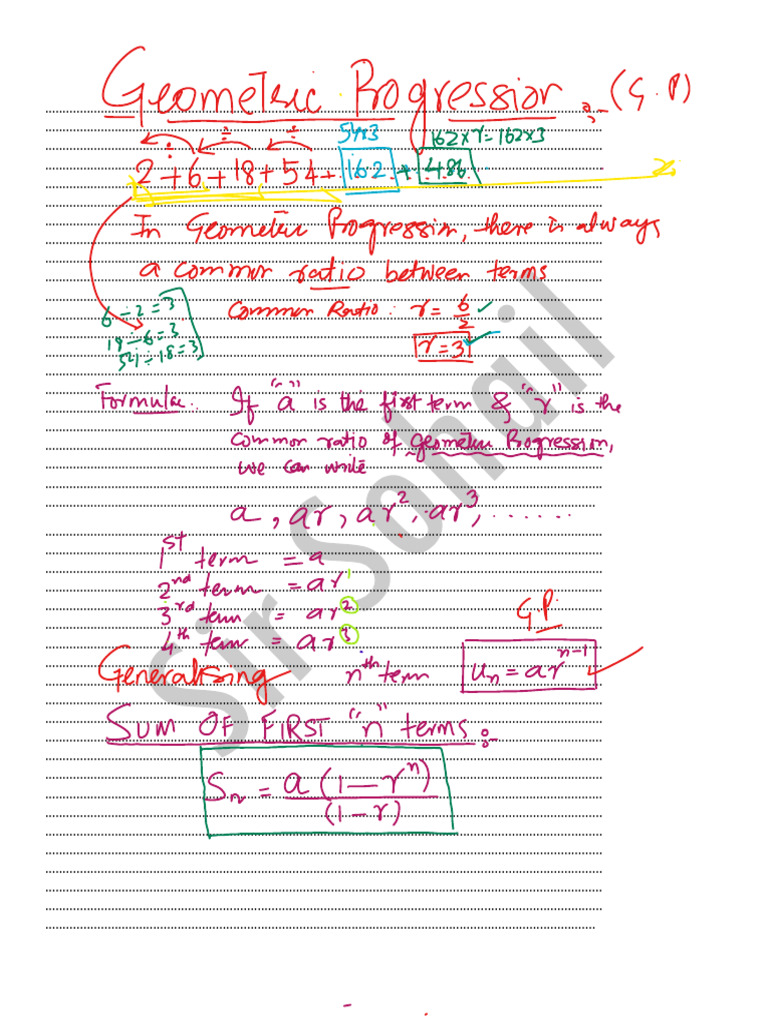 Geometric Progression :- (G.P)
÷ ÷ ÷ 54x3 162xr=162x3
2+6+18+54+162+486
In Geometric Progression, there is always
a common ratio between terms
6÷2=3
18÷6=3
54÷18=3
Common Ratio: r = 6/2
r=3
Formulae:. If "a" is the first term & "r" is the
common ratio of geometric Progression,
we can write
a, ar, ar², ar³, ......
1st term = a
2nd term = ar¹
3rd term = ar²
4th term = ar³
G.P.
Generalising nth term uₙ = arⁿ⁻¹
SUM OF FIRST "n" terms:-
Sₙ = a(1-rⁿ)/(1-r)
Sir Sohail